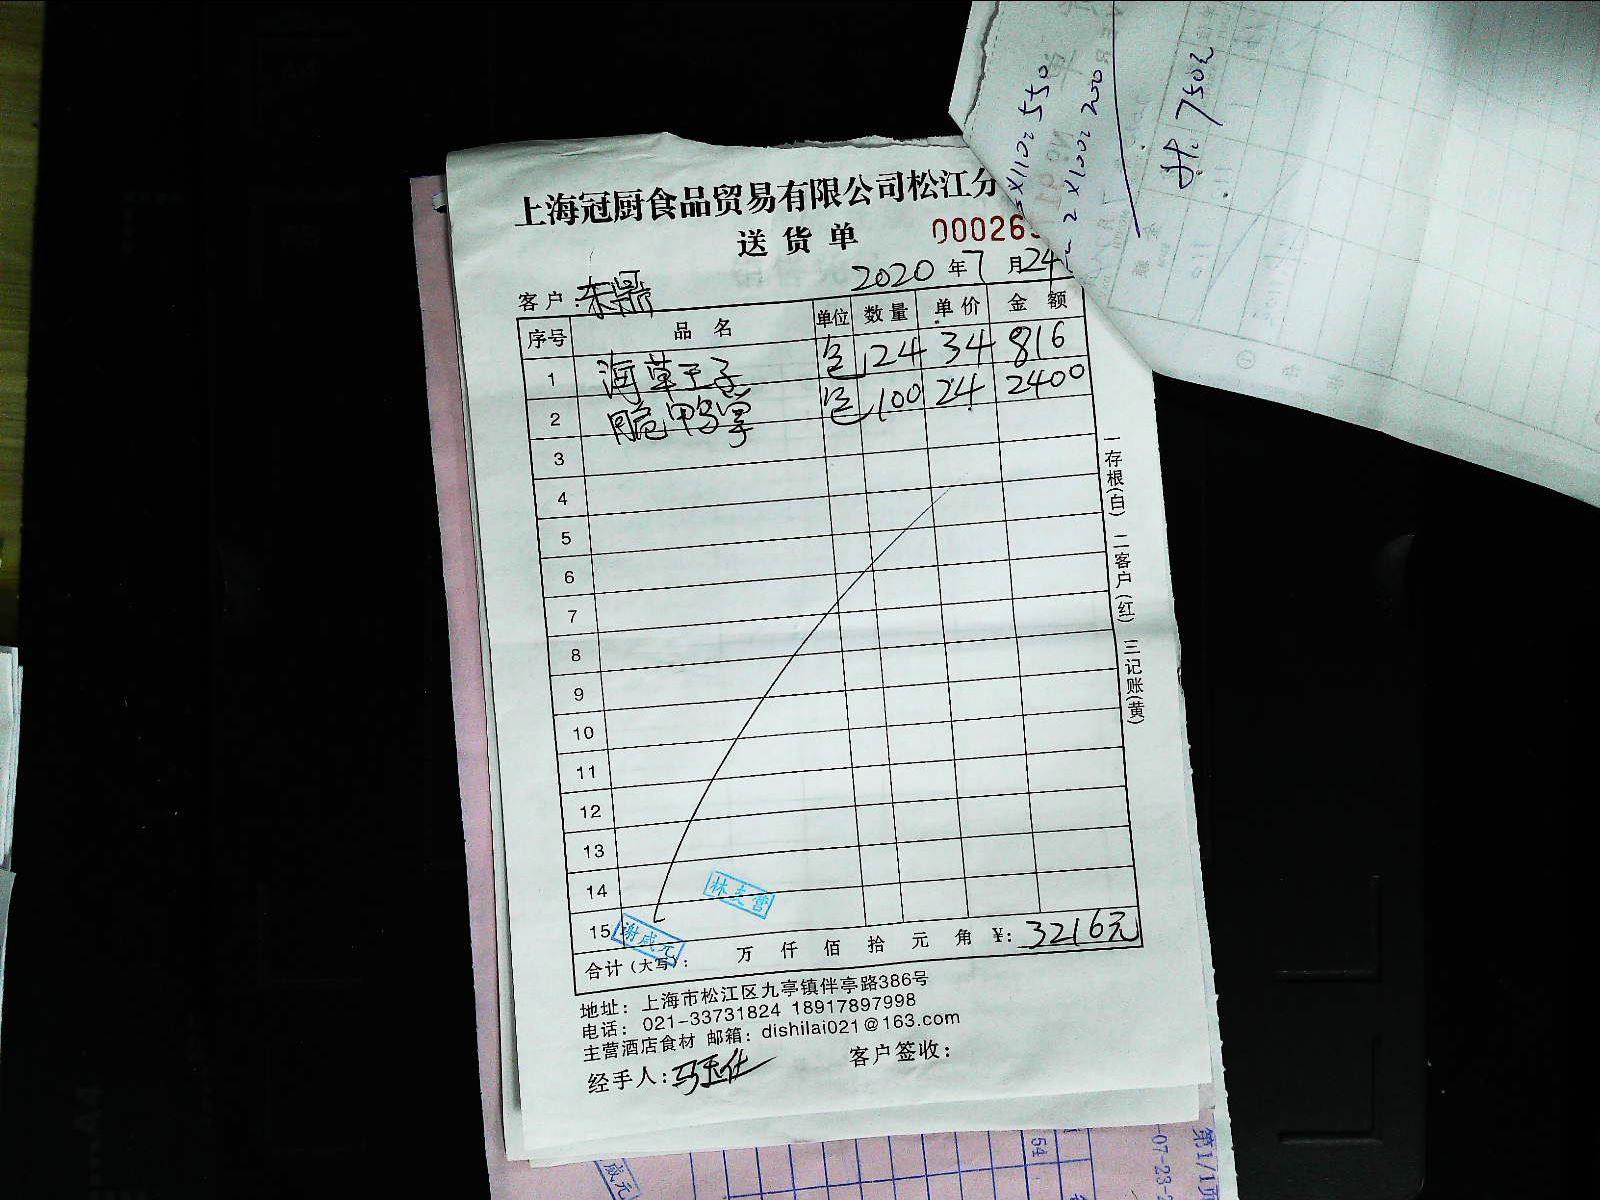 上海冠厨食品贸易有限公司松江分
送货单 00026
2020年7月24
客户：东鼎
序号 品名 单位 数量 单价 金额
1 海草王子 包 24 34 816
2 脆鸭掌 包 100 24 2400
3
4
5
6
7
8
9
10
11
12
13
14
15
林支营
谢咸元
合计（大写）： 万 仟 佰 拾 元 角 ¥：3216元
地址：上海市松江区九亭镇伴亭路386号
电话：021-33731824 18917897998
主营酒店食材 邮箱：dishilai021@163.com
经手人：马玉仕 客户签收：
一存根(白) 二客户(红) 三记账(黄)
5X110=550
2X100=200
共：750元
咸元
54
-07-23-
第1/1页